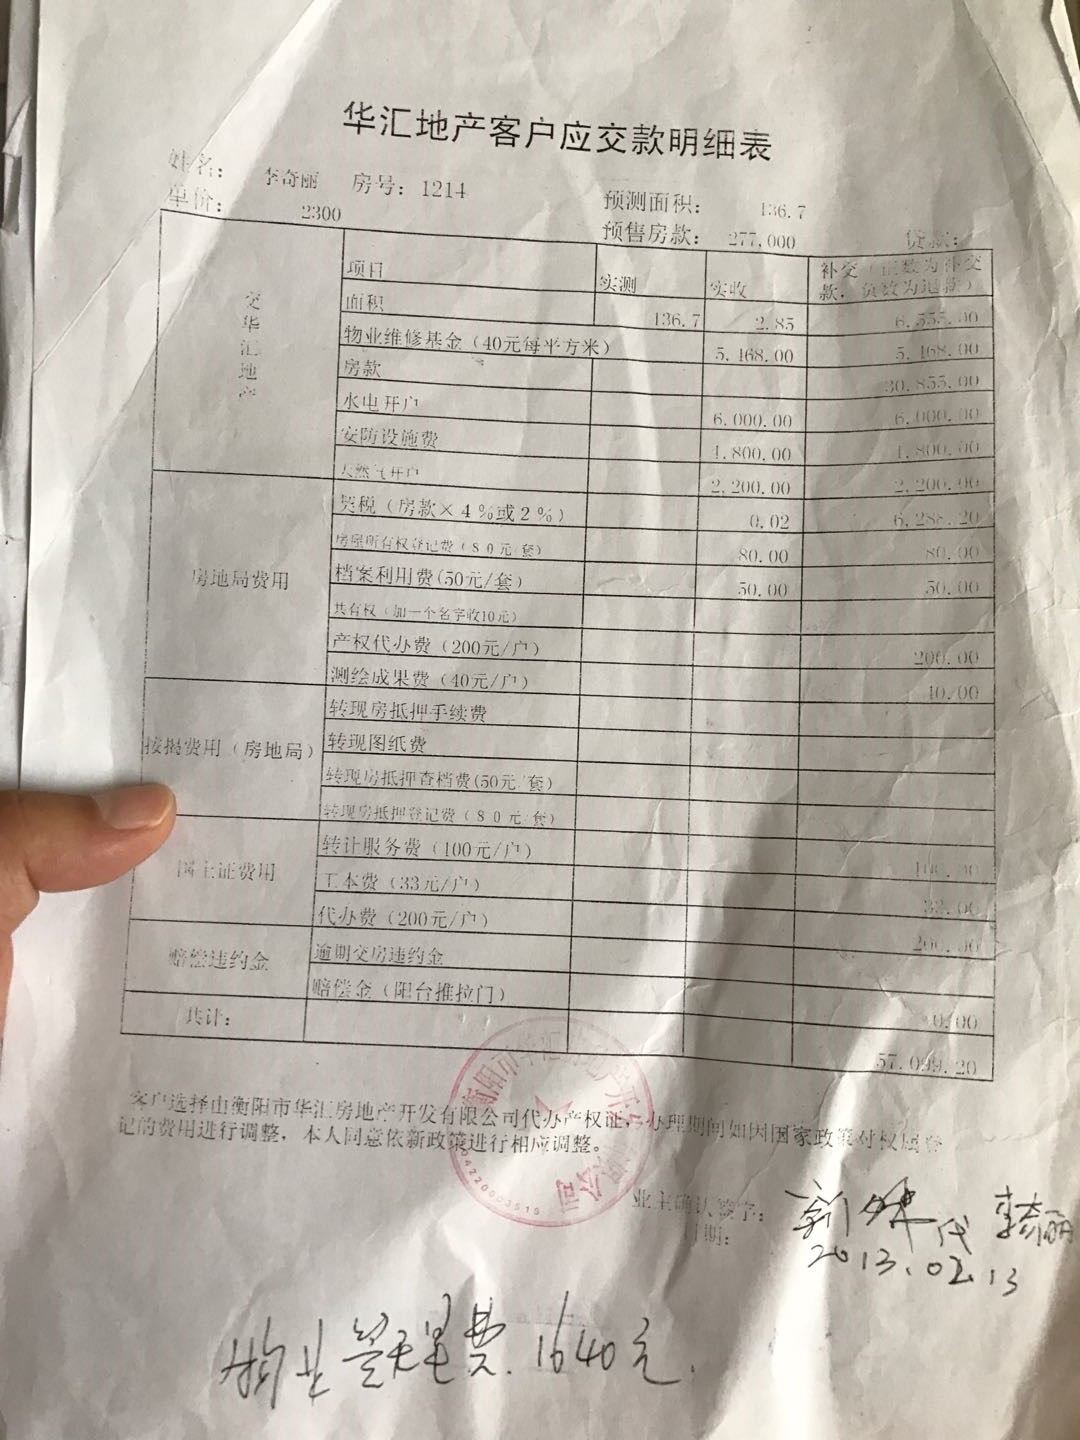 华汇地产客户应交款明细表
姓名： 李奇丽 房号：1214 预测面积： 136.7
单价： 2300 预售房款： 277,000 贷款：
交华汇地产 项目 实测 实收 补交（正数为补交款，负数为退款）
面积 136.7 2.85 6,555.00
物业维修基金（40元每平方米） 5,468.00 5,468.00
房款 30,855.00
水电开户 6,000.00 6,000.00
安防设施费 1,800.00 1,800.00
天然气开户 2,200.00 2,200.00
房地局费用 契税（房款×4%或2%） 0.02 6,288.20
房屋所有权登记费（80元/套） 80.00 80.00
档案利用费(50元/套) 50.00 50.00
共有权（加一个名字收10元）
产权代办费（200元/户） 200.00
测绘成果费（40元/户） 40.00
按揭费用（房地局） 转现房抵押手续费
转现图纸费
转现房抵押查档费(50元/套)
转现房抵押登记费（80元/套）
国土证费用 转让服务费（100元/户） 100.00
工本费（33元/户） 33.00
代办费（200元/户） 200.00
赔偿违约金 逾期交房违约金
赔偿金（阳台推拉门） 0.00
共计： 57,099.20
客户选择由衡阳市华汇房地产开发有限公司代办产权证，办理期间如因国家政策对权属登
记的费用进行调整，本人同意依新政策进行相应调整。
业主确认签字： 代 李奇丽
日期： 2013.02.13
物业管理费.1640元.